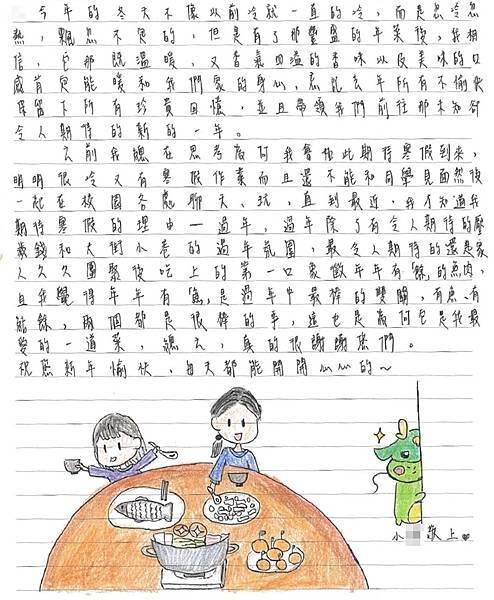 今年的冬天不像以前冷就一直的冷，而是忽冷忽
熱，飄忽不定的，但是有了那豐盛的年菜後，我相
信，它那既溫暖，又香氣四溢的香味以及美味的口
感肯定能暖和我們家的身心，忘記去年所有不愉快
保留下所有珍貴回憶，並且帶領我們前往那未知卻
令人期待的新的一年。
之前我總在思考為何我會如此期待寒假到來，
明明很冷又有寒假作業而且還不能和同學見面然後
一起在校園各處聊天、玩，直到最近，我才知道我
期待寒假的理由一過年，過年除了有令人期待的壓
歲錢和大街小巷的過年氛圍，最令人期待的還是家
人久久團聚後吃上的第一口象徵年年有餘的魚肉，
且我覺得年年有「魚」是過年中最棒的雙關，有魚、有
能餘，兩個都是很棒的事，這也是為何它是我最
愛的一道菜，總之，真的很謝謝您們。
祝您新年愉快，每天都能開開心心的~
小 敬上♥